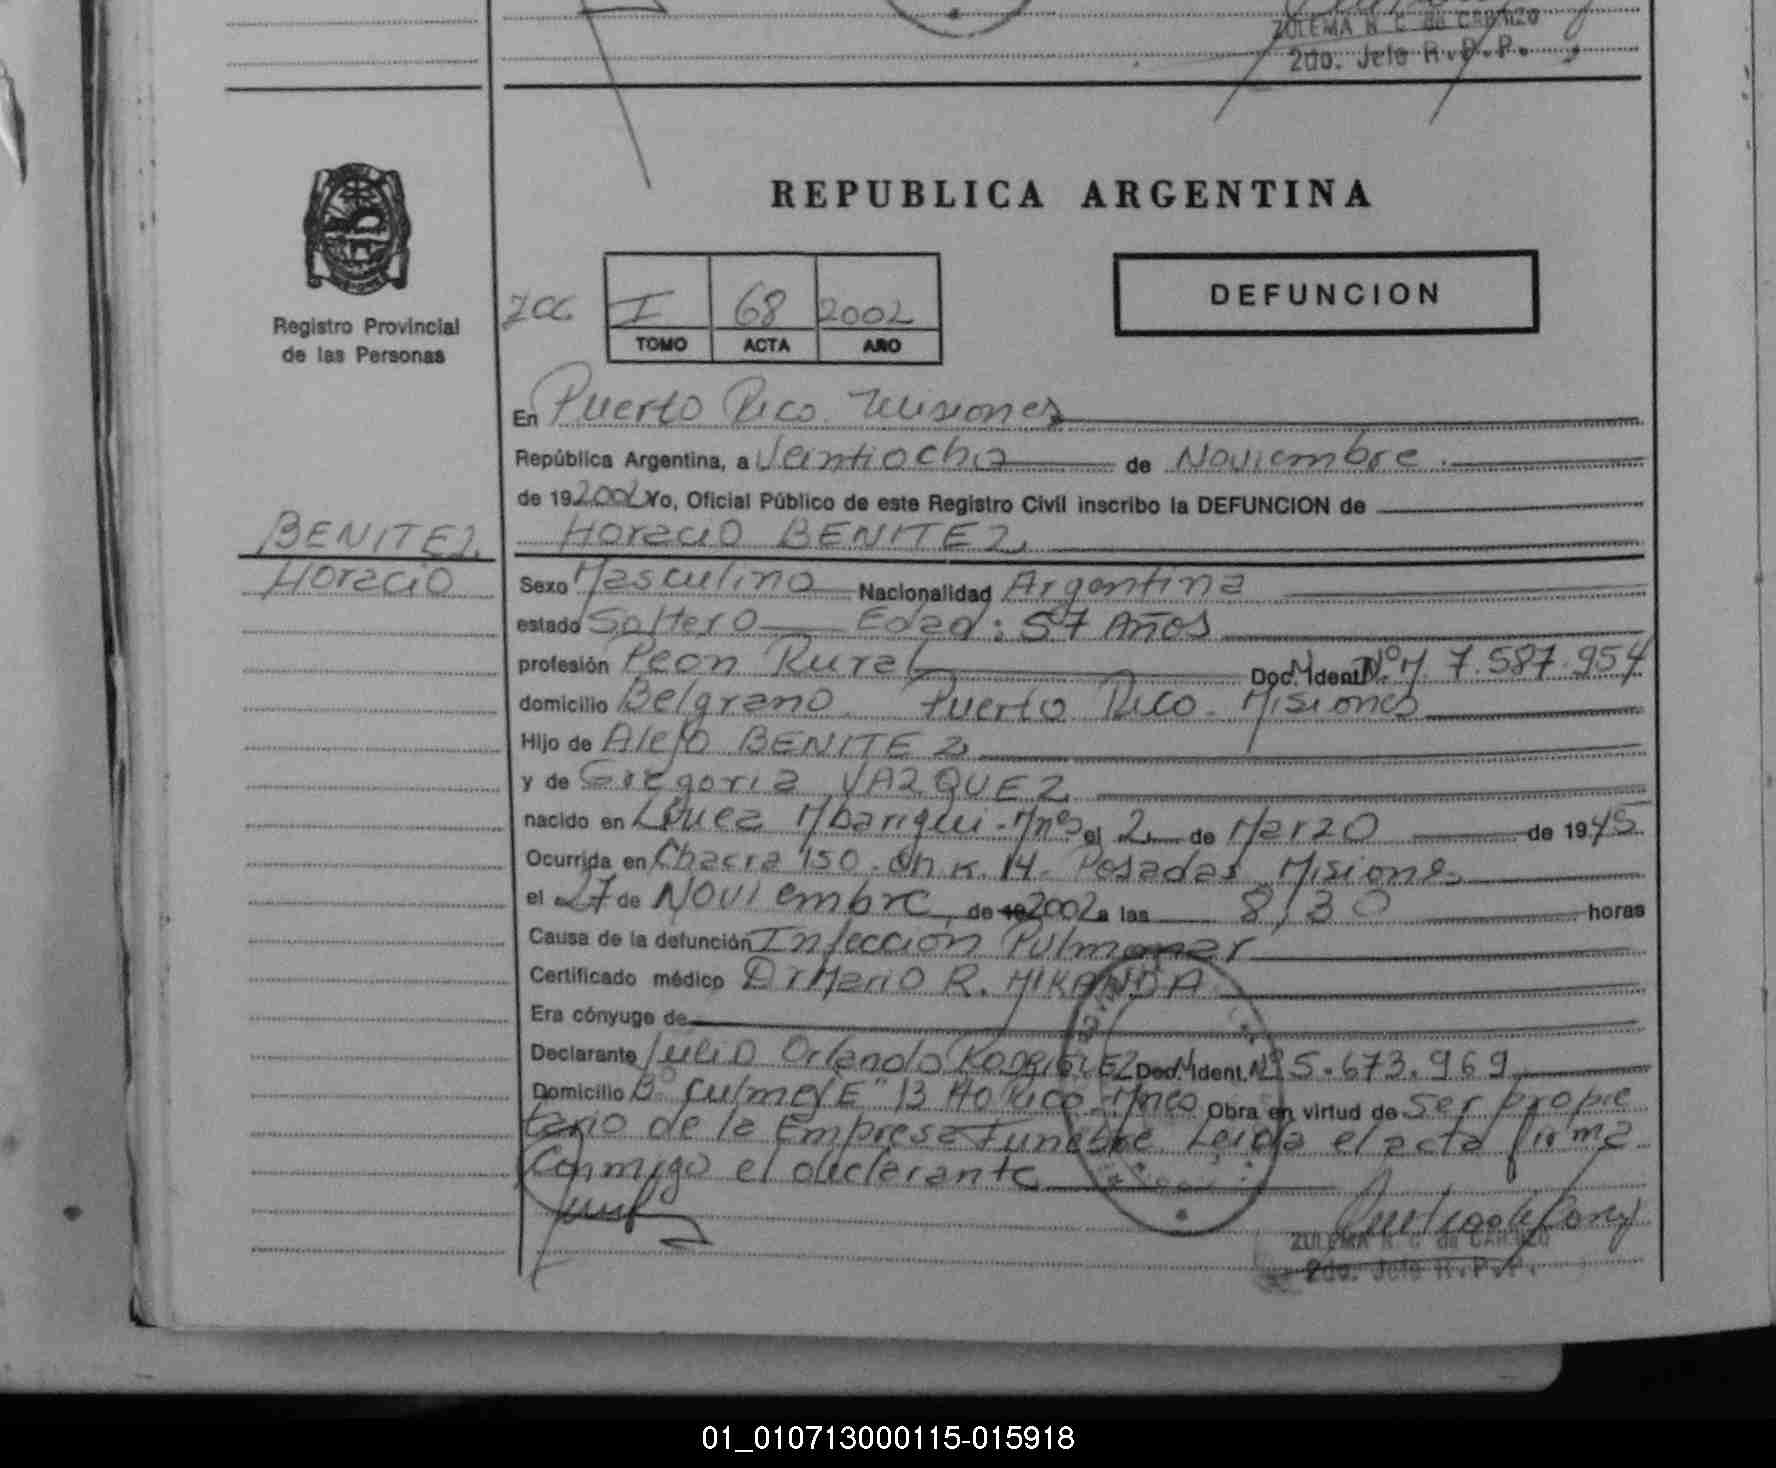 ZULEMA N C de CARNZO
2do. Jefe R.P.P.
REPUBLICA ARGENTINA
Registro Provincial
de las Personas
I 68 2002
TOMO ACTA AÑO
DEFUNCION
En Puerto Rico Misiones
República Argentina, a Veintiocho de Noviembre
de 192002 Yo, Oficial Público de este Registro Civil inscribo la DEFUNCION de
BENITEZ
Horacio BENITEZ
Horacio
Sexo Masculino Nacionalidad Argentina
estado Soltero Edad: 57 Años
profesión Peon Rural Doc. Ident. Nº M 7.587.954
domicilio Belgrano Puerto Rico. Misiones
Hijo de Alejo BENITEZ
y de Gregoria VAZQUEZ
nacido en Mbarigui-Mnes el 2 de Marzo de 1945
Ocurrida en Chacra 150. K. 14. Posadas Misiones
el 27 de Noviembre de 192002 a las 8,30 horas
Causa de la defunción Infección Pulmonar
Certificado médico Dr Mario R. MIRANDA
Era cónyuge de
Declarante Julio Orlando RODRIGUEZ Doc. Ident. Nº 5.673.969
Domicilio Bº Culmey "E" 13 Rico Obra en virtud de ser propie
tario de la Empresa Funebre Leida el acta firma
Conmigo el declarante
ZULEMA N C de CARNZO
2do. Jefe R.P.P.
01_010713000115-015918